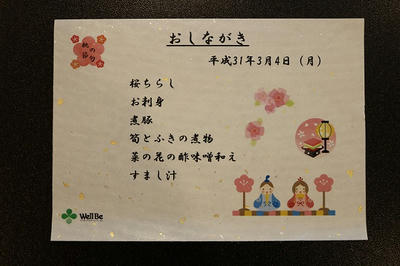 桃の
節句
おしながき
平成31年3月4日（月）
桜ちらし
お刺身
煮豚
筍とふきの煮物
菜の花の酢味噌和え
すまし汁
WellBe